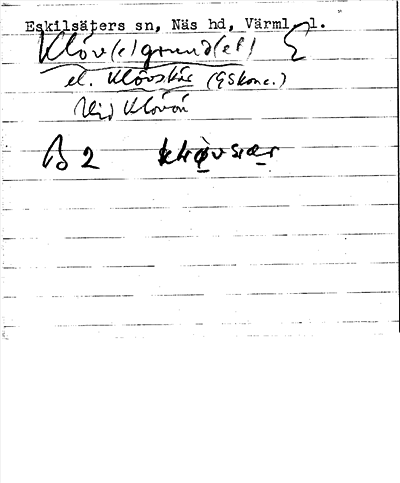 Eskilsäters sn, Näs hd, Värml. l.
Klöv(e)grund(et) E
el. Klövskär (GSkonc.)
Vid Klövön
B 2